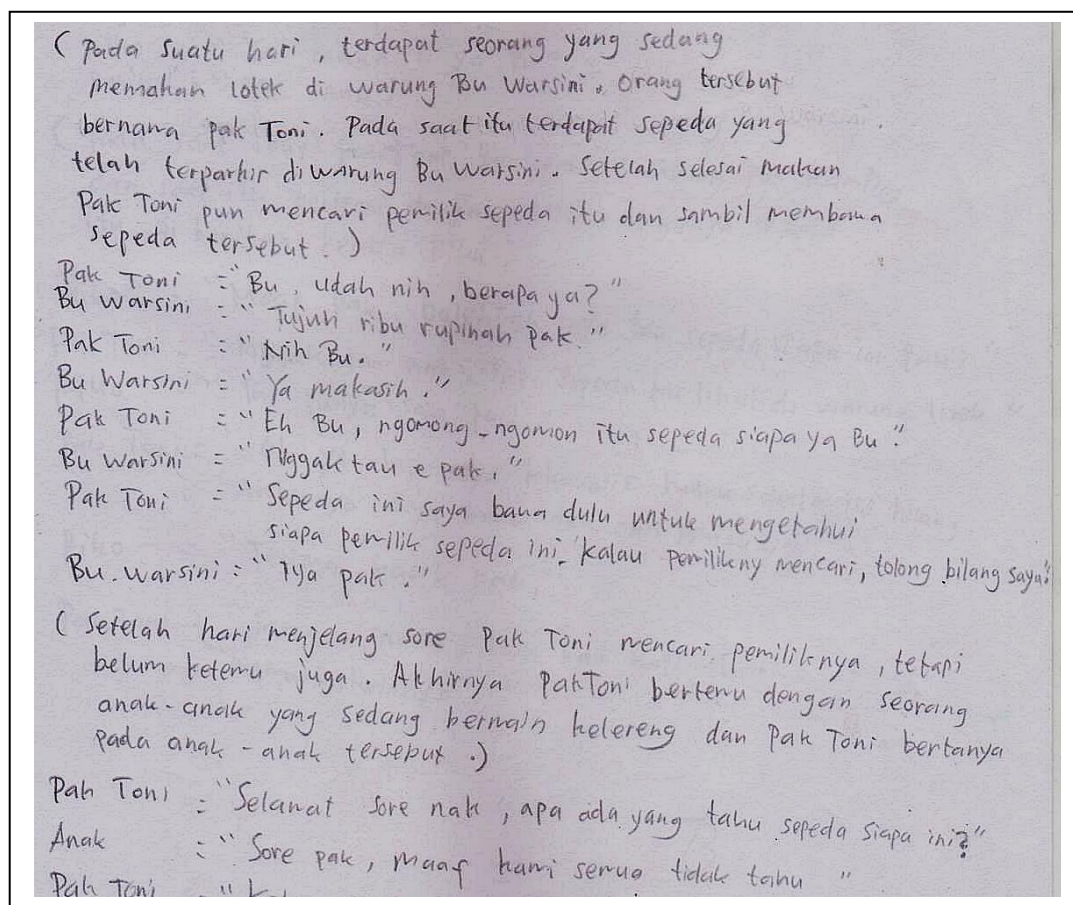 ( Pada suatu hari , terdapat seorang yang sedang
memahan lotek di warung Bu Warsini. Orang tersebut
bernama pak Toni. Pada saat itu terdapat sepeda yang
telah terparkir di warung Bu Warsini. Setelah selesai makan
Pak Toni pun mencari pemilik sepeda itu dan sambil membawa
sepeda tersebut.)
Pak Toni = "Bu, udah nih , berapa ya?"
Bu Warsini : "Tujuh ribu rupihah pak."
Pak Toni : "Nih Bu."
Bu Warsini = "Ya makasih."
Pak Toni : "Eh Bu, ngomong-ngomon itu sepeda siapa ya Bu"
Bu Warsini = "Nggak tau e pak."
Pak Toni : "Sepeda ini saya bawa dulu untuk mengetahui
siapa pemilik sepeda ini. kalau pemilikny mencari, tolong bilang saya."
Bu. Warsini : "Iya pak."
( Setelah hari menjelang sore Pak Toni mencari pemiliknya , tetapi
belum ketemu juga. Akhirnya Pak Toni bertemu dengan seorang
anak-anak yang sedang bermain kelereng dan Pak Toni bertanya
pada anak-anak tersebut .)
Pak Toni : "Selamat sore nak , apa ada yang tahu sepeda siapa ini?"
Anak : "Sore pak, maaf kami semua tidak tahu "
Pak Toni